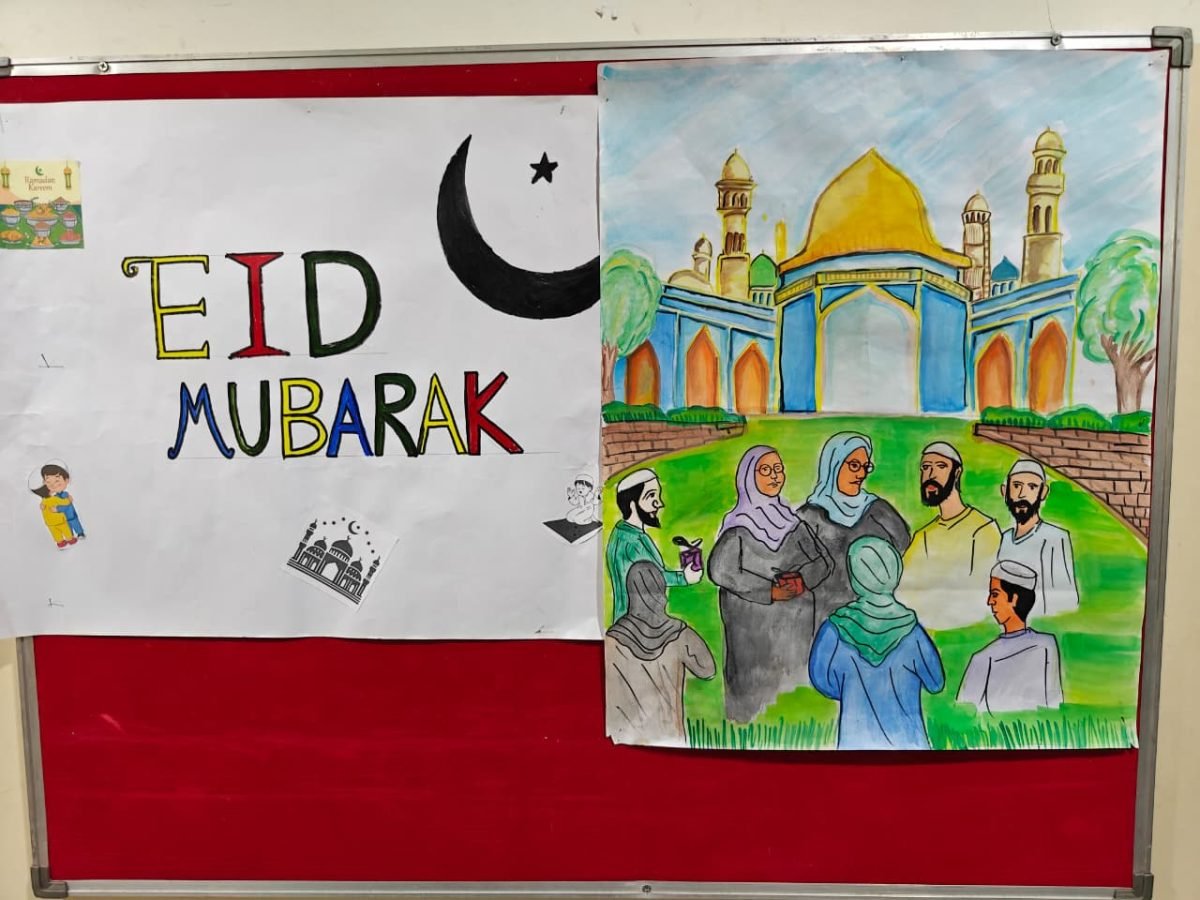 Ramadan
Kareem
EID
MUBARAK